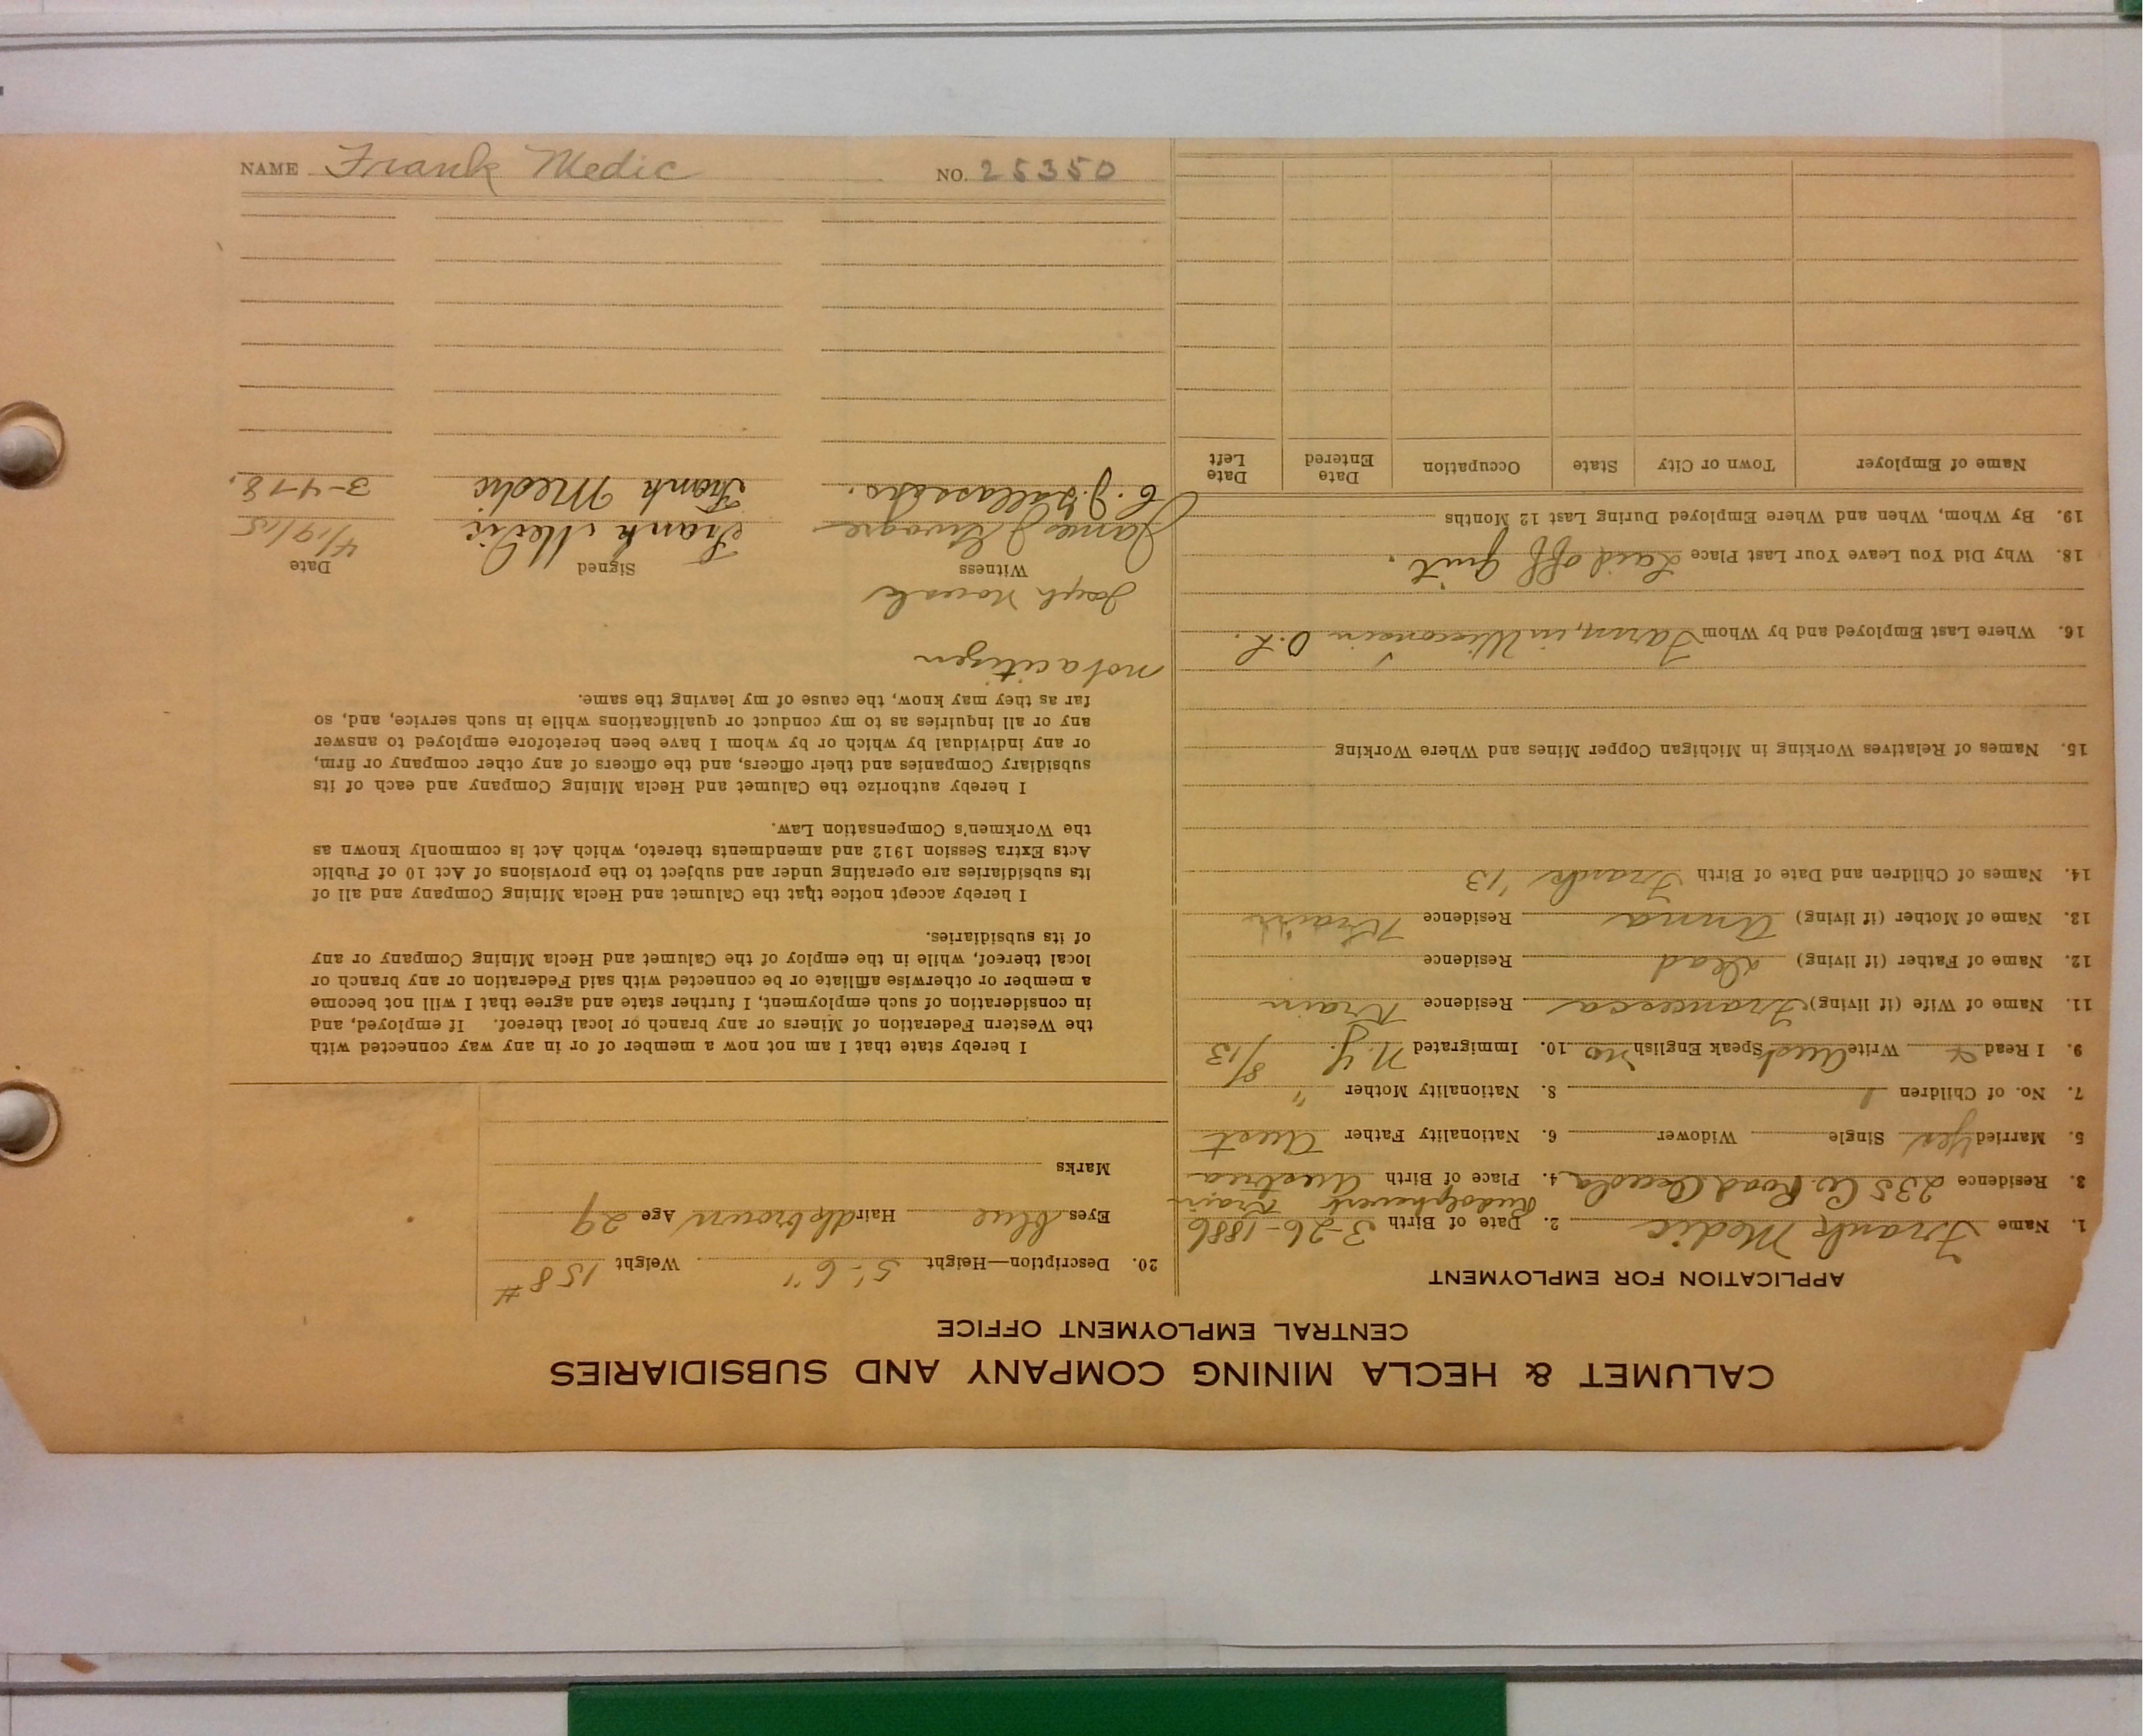 CALUMET & HECLA MINING COMPANY AND SUBSIDIARIES
CENTRAL EMPLOYMENT OFFICE
APPLICATION FOR EMPLOYMENT
1. Name Frank Medic 2. Date of Birth 3-26-1886
Krain
3. Residence 235 Co. Road Osceola 4. Place of Birth Austria
5. Married Yes Single Widower 6. Nationality Father Aust
7. No. of Children 1 8. Nationality Mother "
9. I Read & Write Aust Speak English no 10. Immigrated N.Y. 8/13
11. Name of Wife (if living) Francesca Residence Krain
12. Name of Father (if living) Dead Residence
13. Name of Mother (if living) Anna Residence Krain
14. Names of Children and Date of Birth Frank '13
15. Names of Relatives Working in Michigan Copper Mines and Where Working
16. Where Last Employed and by Whom Farm, in Wisconsin O.L.
18. Why Did You Leave Your Last Place Laid off quit.
19. By Whom, When and Where Employed During Last 12 Months
Name of Employer Town or City State Occupation Date Entered Date Left
20. Description—Height 5'-6" Weight 158#
Eyes blue Hair dk brown Age 29
Marks
I hereby state that I am not now a member of or in any way connected with
the Western Federation of Miners or any branch or local thereof. If employed, and
in consideration of such employment, I further state and agree that I will not become
a member or otherwise affiliate or be connected with said Federation or any branch or
local thereof, while in the employ of the Calumet and Hecla Mining Company or any
of its subsidiaries.
I hereby accept notice that the Calumet and Hecla Mining Company and all of
its subsidiaries are operating under and subject to the provisions of Act 10 of Public
Acts Extra Session 1912 and amendments thereto, which Act is commonly known as
the Workmen's Compensation Law.
I hereby authorize the Calumet and Hecla Mining Company and each of its
subsidiary Companies and their officers, and the officers of any other company or firm,
or any individual by which or by whom I have been heretofore employed to answer
any or all inquiries as to my conduct or qualifications while in such service, and, so
far as they may know, the cause of my leaving the same.
not a citizen
Joseph
Witness Signed Date
James Frank Medic 4/19/15
C. J. Frank Medic 3-4-18.
NAME Frank Medic NO. 25350